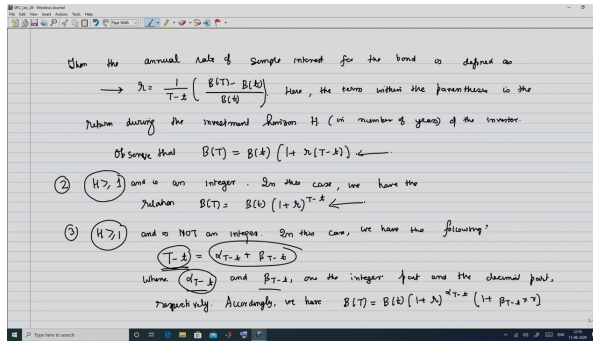 SPC_Lec_28 - Windows Journal
File Edit View Insert Actions Tools Help
Page Width
Then the annual rate of simple interest for the bond is defined as
→ r = 1/(T-t) ( (B(T) - B(t))/B(t) ). Here, the term within the parentheses is the
return during the investment horizon H (in number of years) of the investor.
Observe that B(T) = B(t) (1 + r(T-t)) ←
② H ≥ 1 and is an integer. In this case, we have the
relation B(T) = B(t) (1 + r)^{T-t} ←
③ H ≥ 1 and is NOT an integer. In this case, we have the following:
T-t = α_{T-t} + β_{T-t}
Where α_{T-t} and β_{T-t}, are the integer part and the decimal part,
respectively. Accordingly, we have B(T) = B(t) (1 + r)^{α_{T-t}} (1 + β_{T-t} × r)
Type here to search
ENG